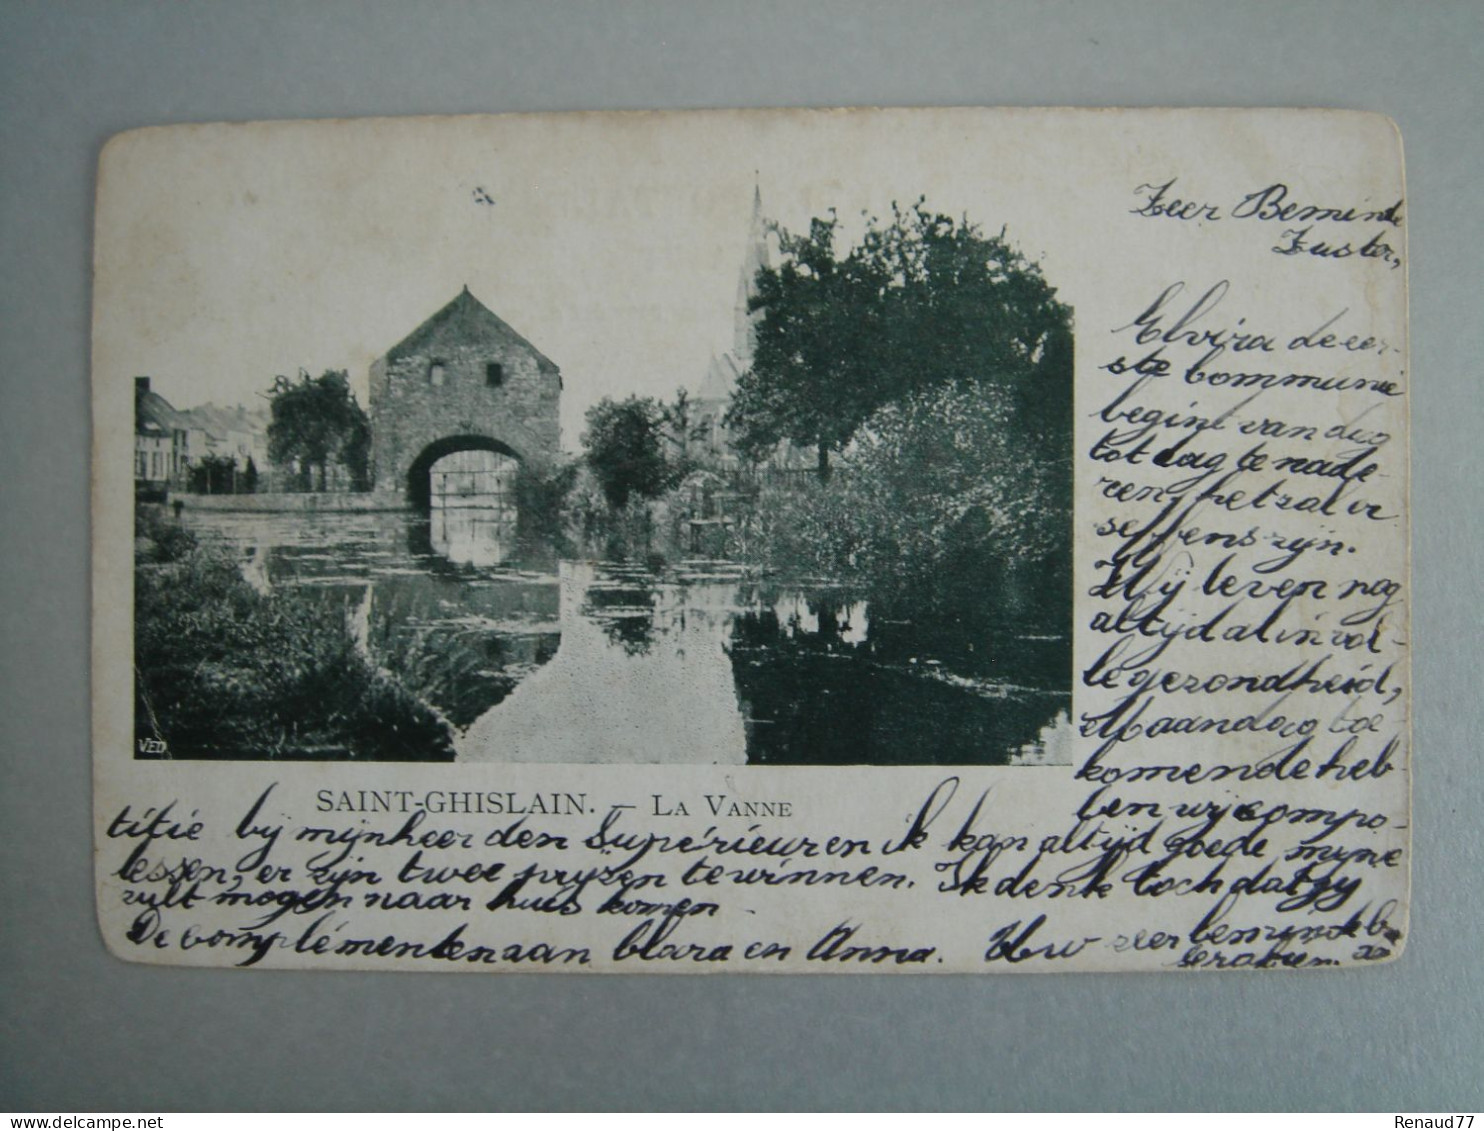 Zeer Beminde
Zuster,
Elvira de eer-
ste Communie
begint van dag
tot dag te nade-
ren, het zal er
seffens zijn.
Wij leven nog
altijd al in vol-
le gezondheid,
Maandag toe
komende heb-
ben wij compo-
SAINT-GHISLAIN. — LA VANNE
titie bij mijnheer den Supérieur en ik kan altijd goede mijne
lessen, er zijn twee prijzen te winnen. Ik denk toch dat gij
zult mogen naar huis komen
De Complémenten aan Clara en Anna. Uw zeer beminde
VED
Renaud77